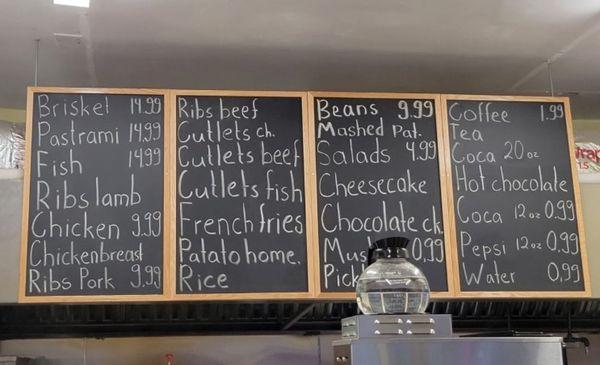 Brisket 14.99
Pastrami 14.99
Fish 14.99
Ribs lamb
Chicken 9.99
Chickenbreast
Ribs Pork 9.99
Ribs beef
Cutlets ch.
Cutlets beef
Cutlets fish
French fries
Patato home.
Rice
Beans 9.99
Mashed Pat.
Salads 4.99
Cheesecake
Chocolate ck
Mus 0,99
Pick
Coffee 1.99
Tea
Coca 20 oz
Hot chocolate
Coca 12 oz 0,99
Pepsi 12 oz 0,99
Water 0,99